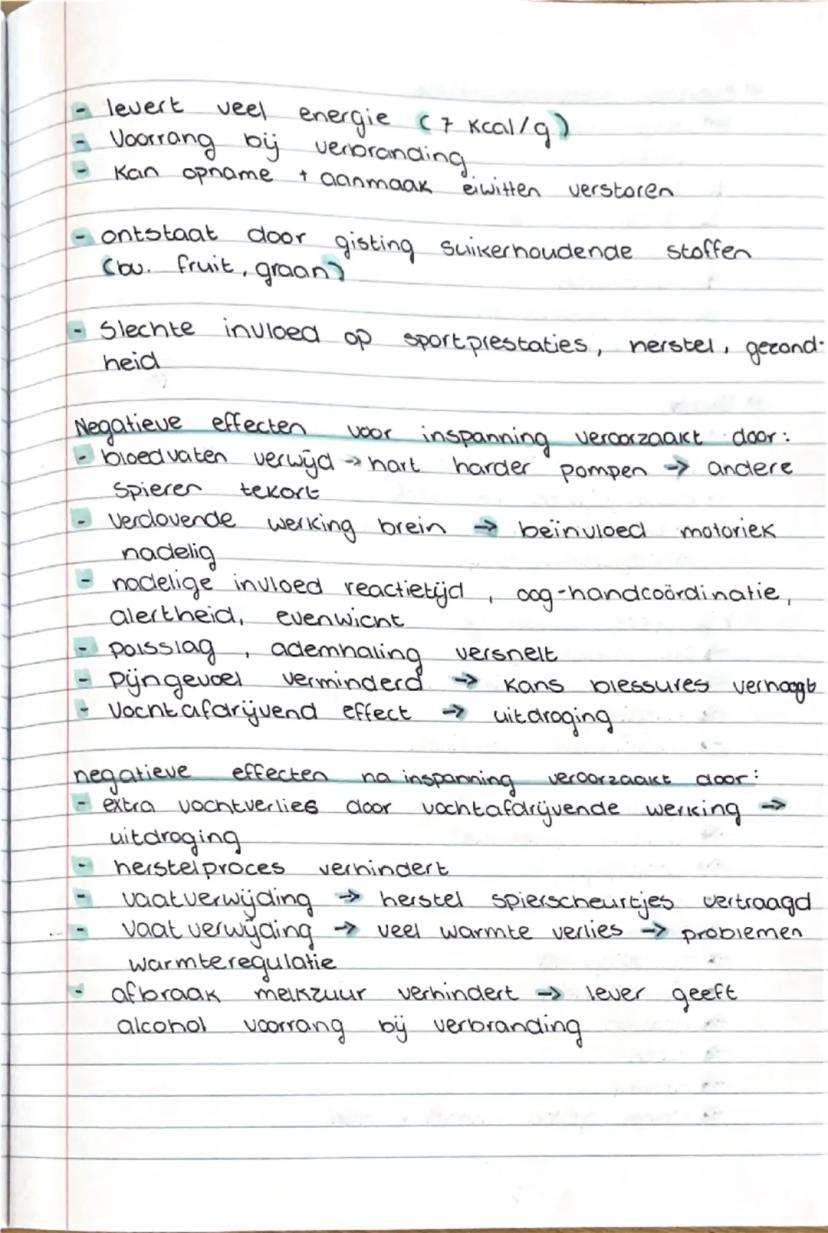 - levert veel energie (7 Kcal/g)
- Voorrang bij verbranding
- Kan opname + aanmaak eiwitten verstoren
- ontstaat door gisting suikerhoudende stoffen
(bv. fruit, graan)
- Slechte invloed op sportprestaties, herstel, gezond-
heid
Negatieve effecten voor inspanning veroorzaakt door:
- bloedvaten verwijd → hart harder pompen → andere
spieren tekort
- verdovende werking brein → beïnvloed motoriek
nadelig
- nadelige invloed reactietijd, oog-handcoördinatie,
alertheid, evenwicht
- polsslag, ademhaling versnelt
- Pijngevoel verminderd → kans blessures verhoogt
- Vochtafdrijvend effect → uitdroging
negatieve effecten na inspanning veroorzaakt door:
- extra vochtverlies door vochtafdrijvende werking →
uitdroging
- herstelproces verhindert
- vaatverwijding → herstel spierscheurtjes vertraagd
- vaatverwijding → veel warmte verlies → problemen
warmteregulatie
- afbraak melkzuur verhindert → lever geeft
alcohol voorrang bij verbranding